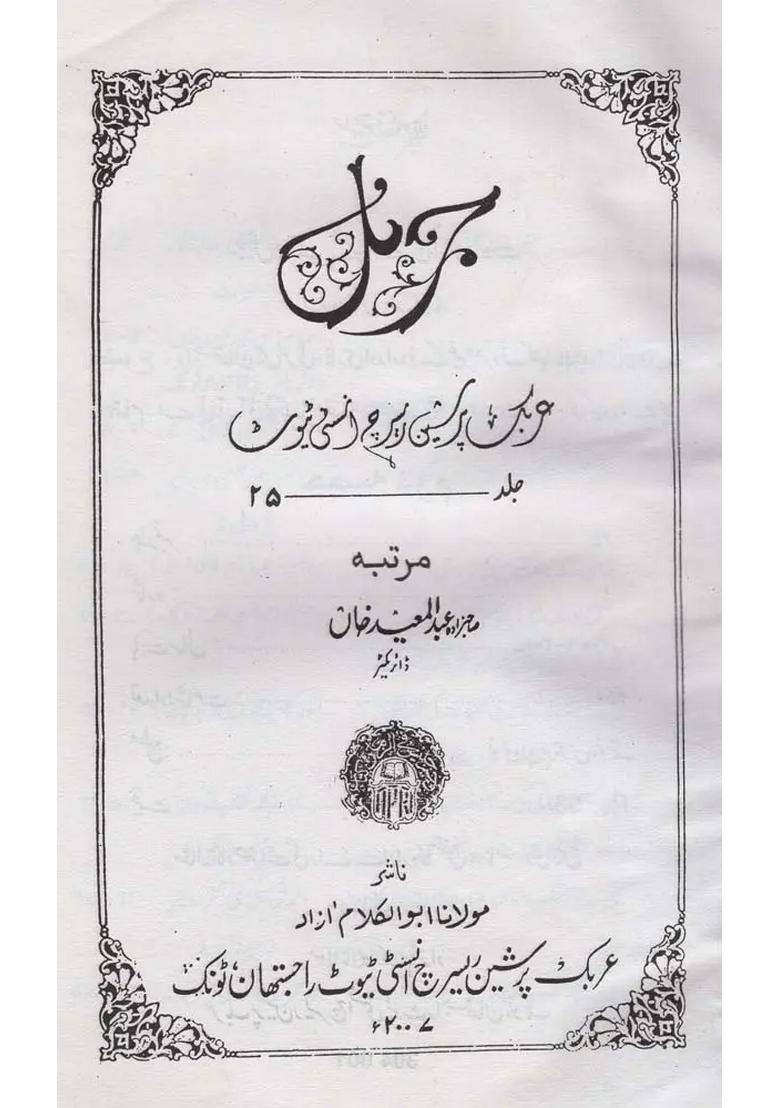 جرنل
عربک پرشین ریسرچ انسٹی ٹیوٹ
جلد ———— ۲۵
مرتبہ
صاحبزادہ عبدالمعید خان
ڈائریکٹر
ناشر
مولانا ابوالکلام آزاد
عربک پرشین ریسرچ انسٹی ٹیوٹ راجستھان، ٹونک
۲۰۰۷ء